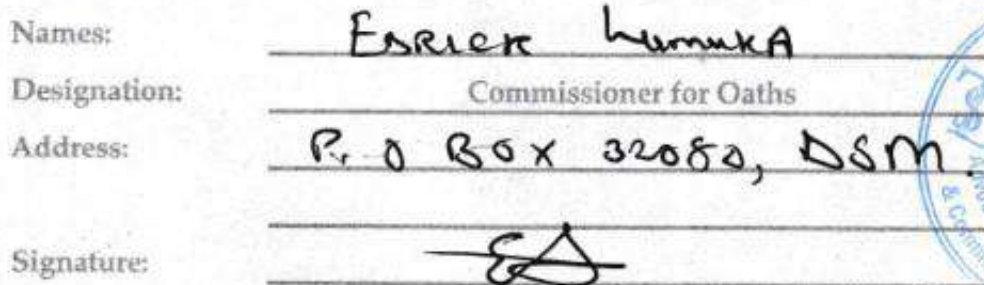 Names: ESRICK LumukA
Designation: Commissioner for Oaths
Address: P. O BOX 32080, DSM.
Signature:
& Comm